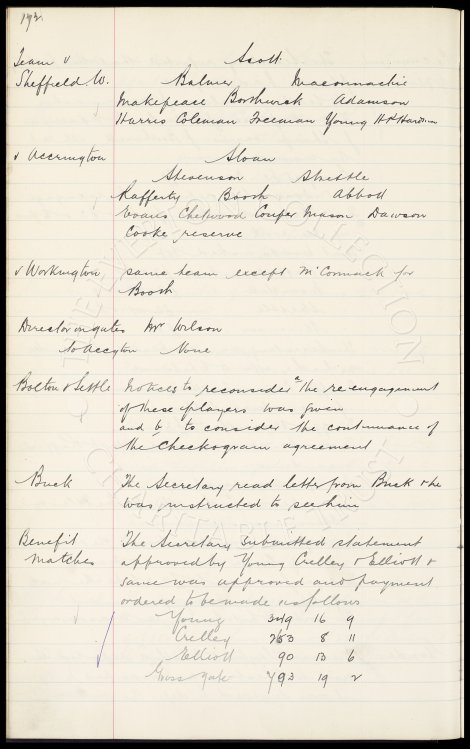 192.
Team v Scott.
Sheffield W. Balmer Maconnachie
Makepeace Borthwick Adamson
Harris Coleman Freeman Young H.P. Hardman
v Accrington Sloan
Stevenson Strettle
Rafferty Booth Abbott
Evans Chetwood Couper Mason Dawson
Cooke reserve
v Workington same team except McCormack for
Booth
Director in gates Mr Wilson
to Accgton None
Bolton v Settle Notices to reconsider a the re engagement
of these players was given
and b to consider the continuance of
the Checkogram agreement
Buck The Secretary read letter from Buck & he
was instructed to see him
Benefit The Secretary submitted statement
Matches approved by Young Crelley & Elliott &
same was approved and payment
ordered to be made as follows
Young 349 16 9
Crelley 253 8 11
Elliott 90 13 6
Gross gate 793 19 2
THE EVERTON COLLECTION
CHARITABLE TRUST